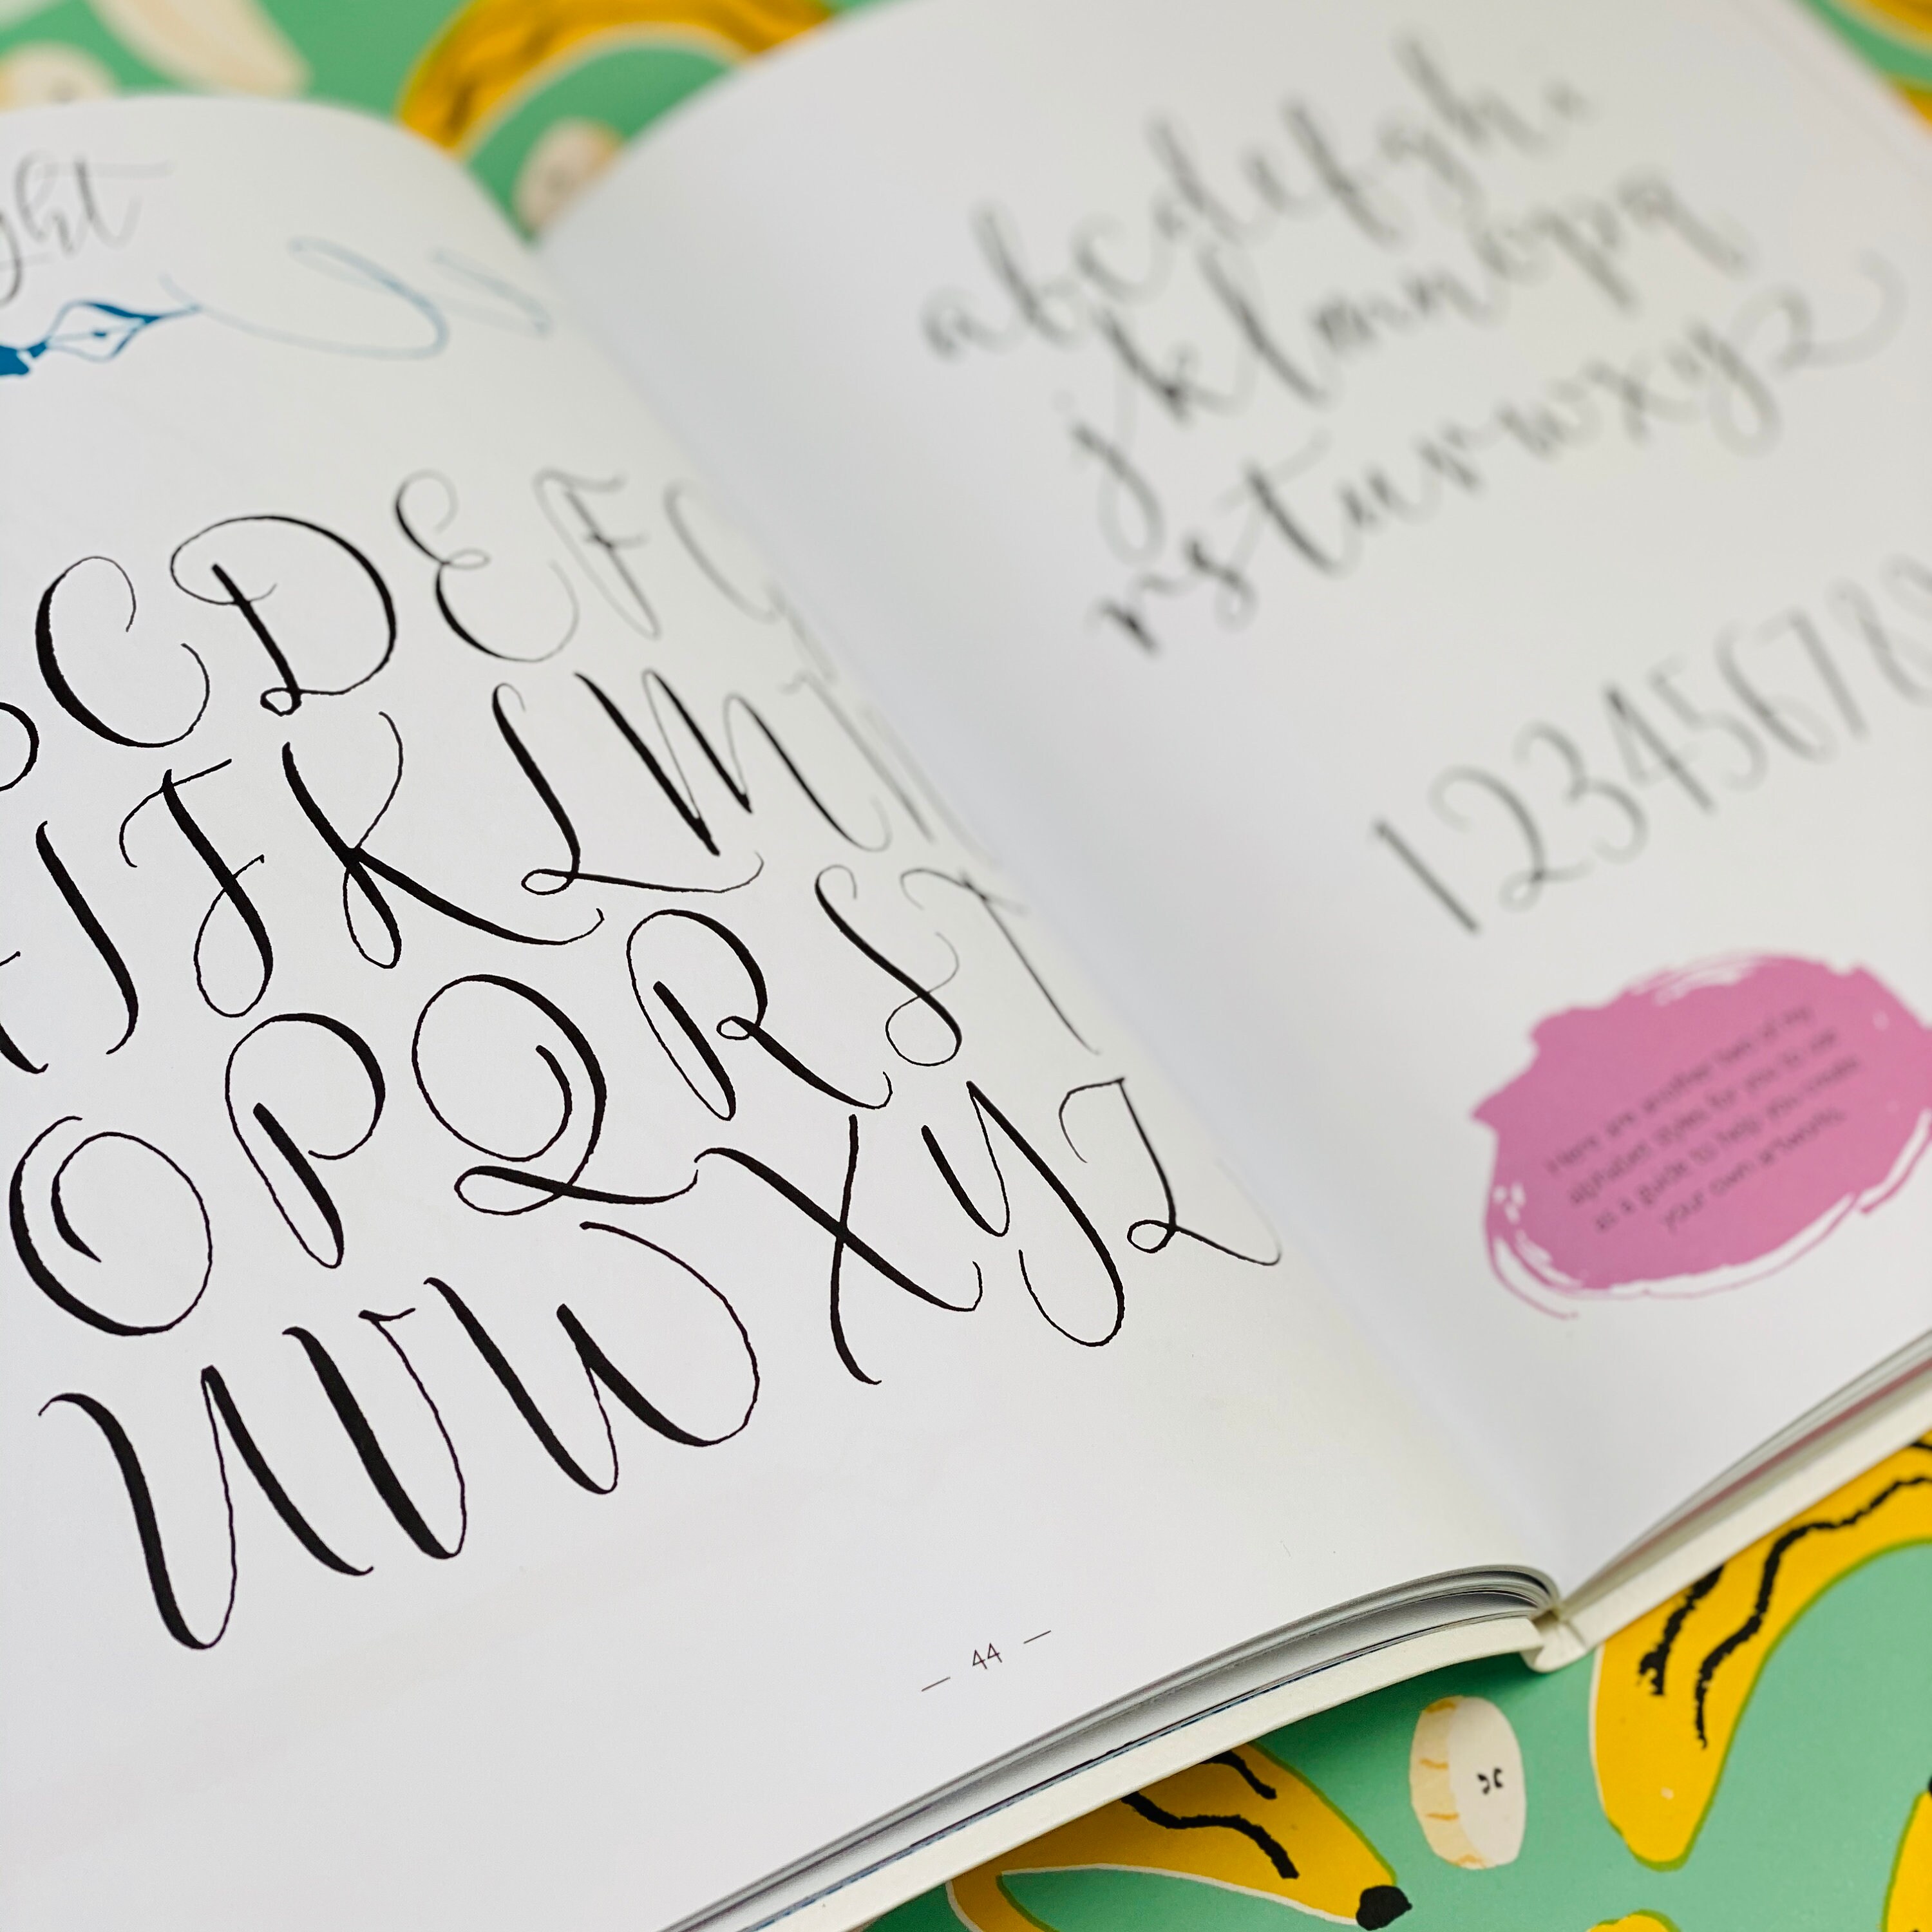 ght
C D E F G
I J K L M
O P Q R S T
U V W X Y Z
— 44 —
a b c d e f g h i
j k l m n o p q
r s t u v w x y z
1 2 3 4 5 6 7 8 9
Here are another two of my
alphabet styles for you to use
as a guide to help you create
your own artworks.